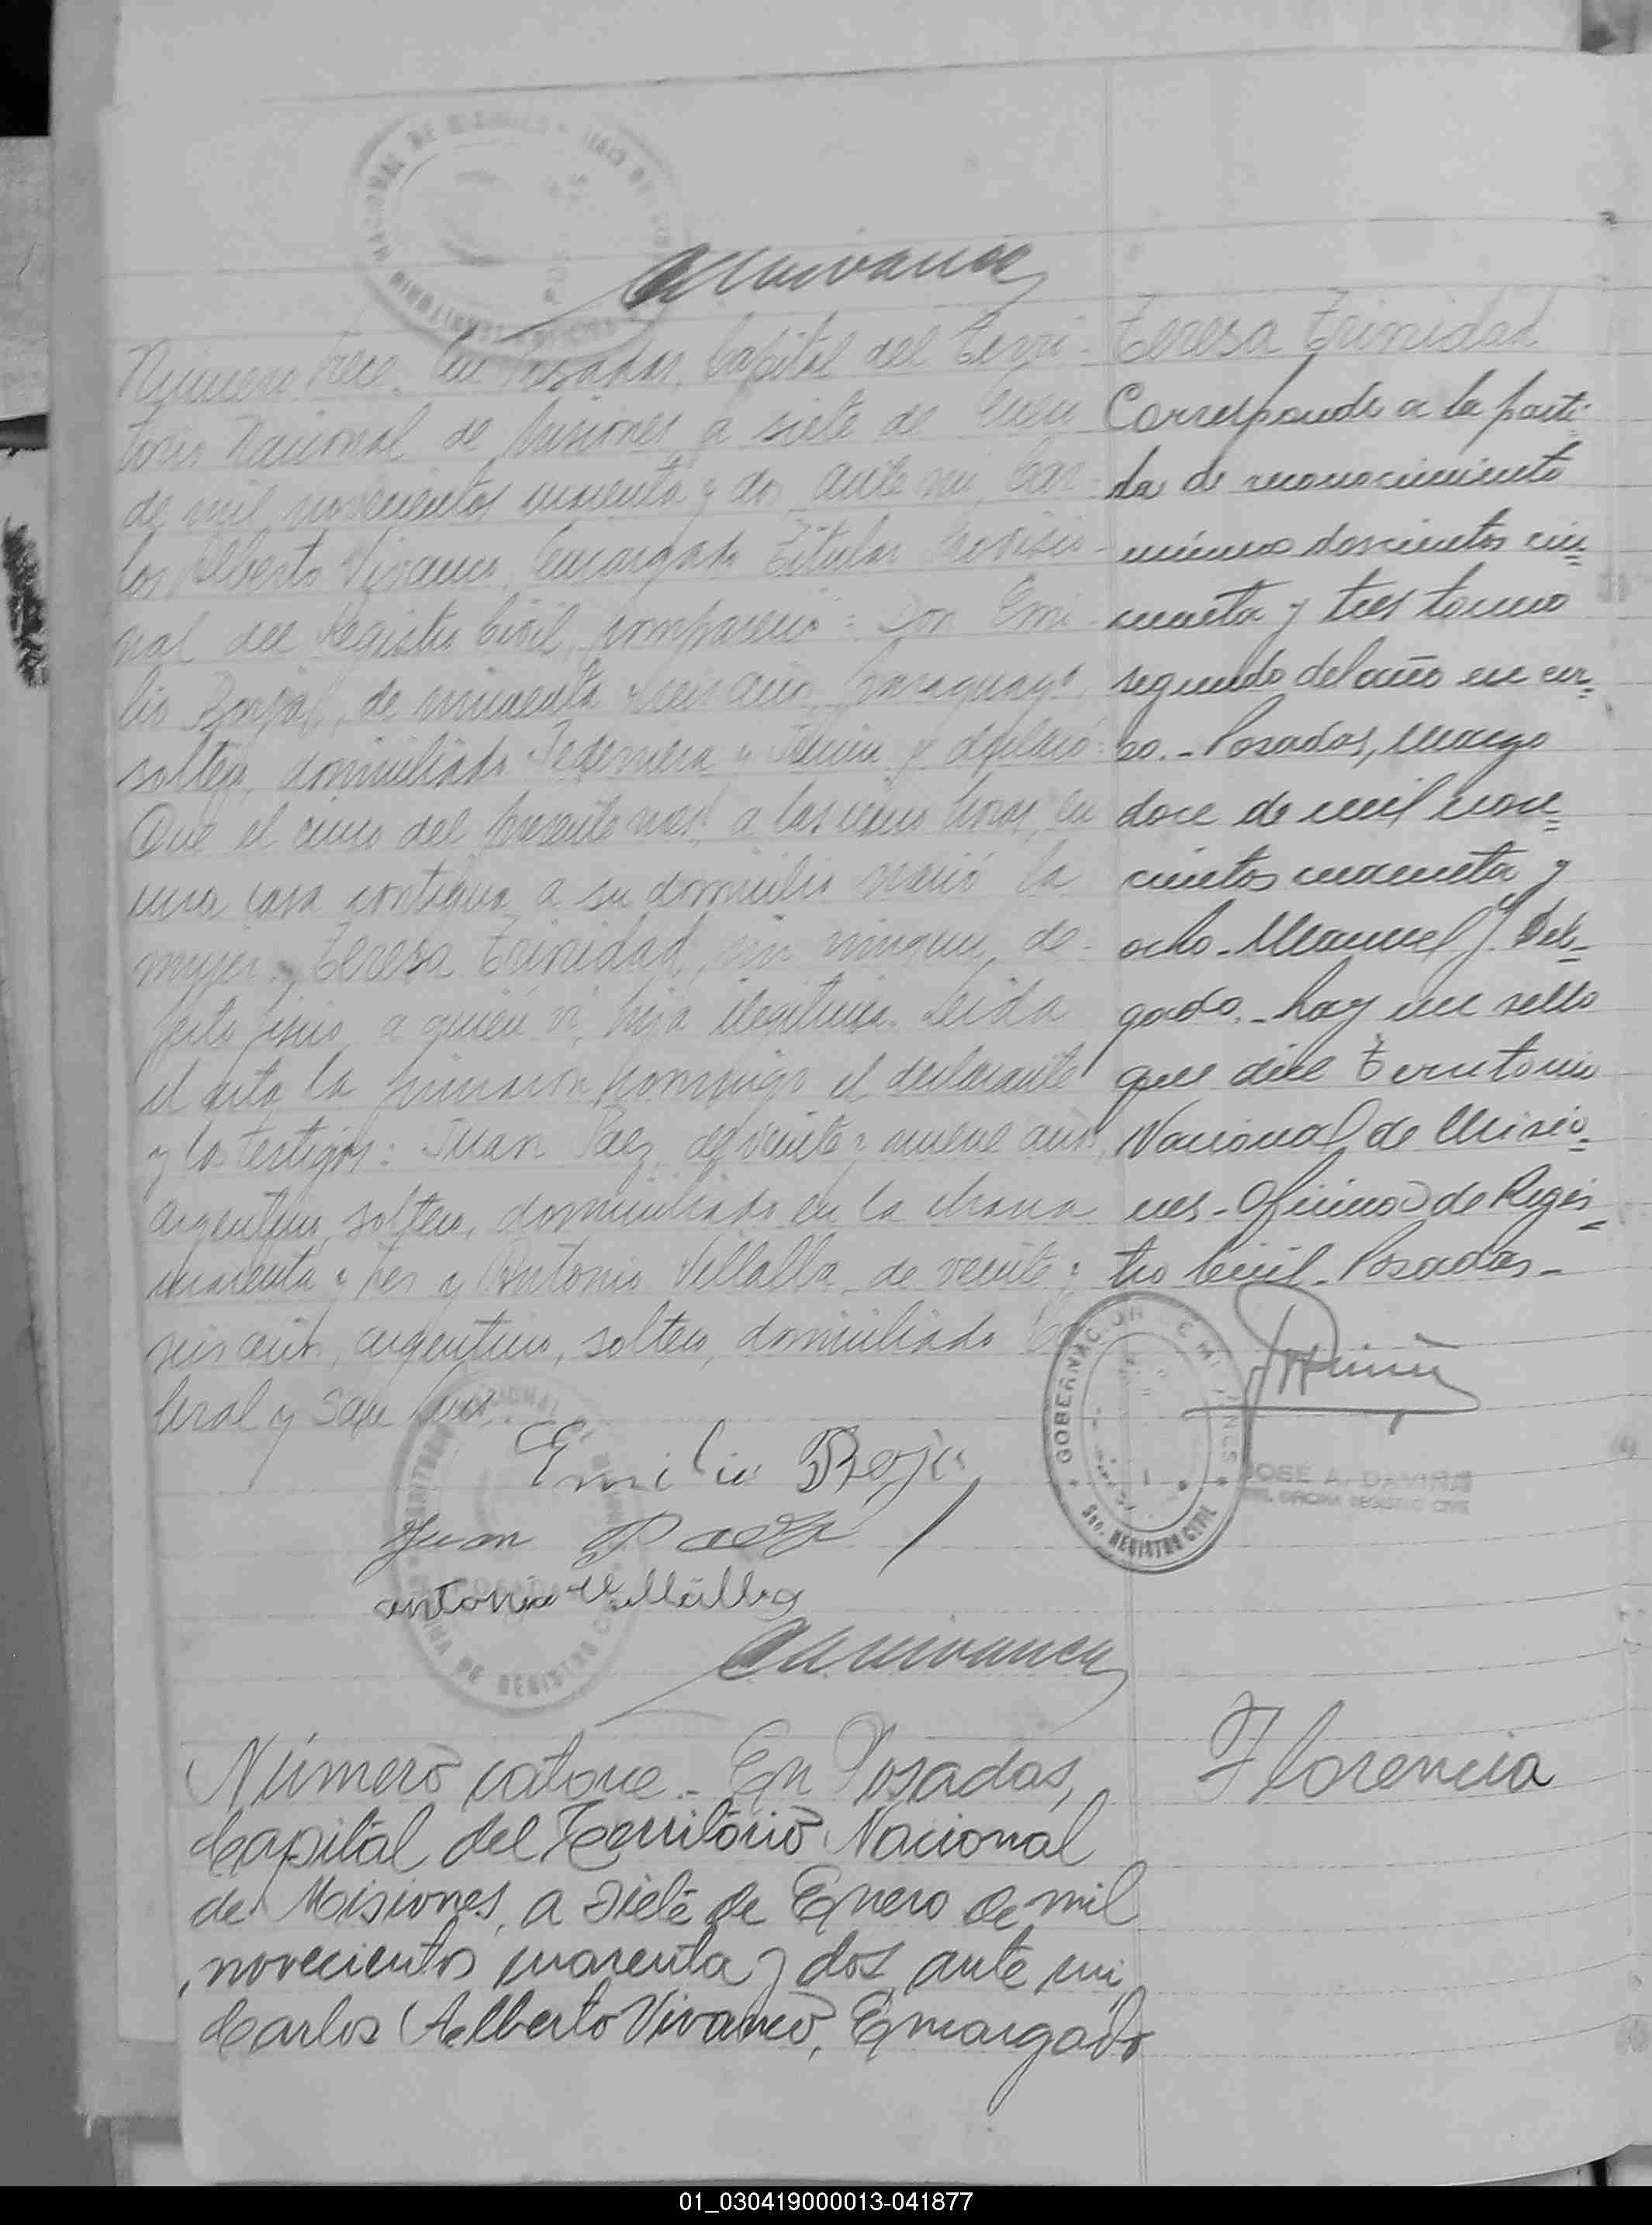 CAVivanco
Número trece. En Posadas, Capital del Terri-
torio Nacional de Misiones, a siete de Enero
de mil novecientos cuarenta y dos, ante mí, Car-
los Alberto Vivanco, Encargado Titular Provisio-
nal del Registro Civil, compareció: Don Emi-
lio Borja, de cuarenta y seis años, paraguayo,
soltero, domiciliado y declaró:
Que el cinco del presente mes a las horas, en
una casa contigua a su domicilio nació la
mujer: Teresa Trinidad, sin ningun de-
fecto físico, a quién vi, hija ilegitima. Leida
el acta la firmaron conmigo el declarante
y los testigos: Juan Paez, de veinte y nueve años,
argentino, soltero, domiciliado en la chacra
cuarenta y tres y Antonio Villalba, de veinte y
seis años, argentino, soltero, domiciliado
y San Luis.
Emilio Borja
Juan Paez
Antonio Villalba
CAVivanco
Teresa Trinidad
Corresponde a la parti-
da de reconocimiento
número doscientos cin=
cuenta y tres tomo
segundo del año en cur=
so.- Posadas, marzo
doce de mil nove=
cientos cuarenta y
ocho - Manuel J. Del-
gado. - hay un sello
que dice Territorio
Nacional de Misio=
nes - Oficina de Regis=
tro Civil - Posadas -
GOBERNACION DE MISIONES
Sec. REGISTRO CIVIL
JOSÉ A. DAVIÑA
OFICINA REGISTRO CIVIL
Número catorce - En Posadas,
Capital del Territorio Nacional
de Misiones, a siete de Enero de mil
novecientos cuarenta y dos, ante mi,
Carlos Alberto Vivanco, Encargado
Florencia
01_030419000013-041877